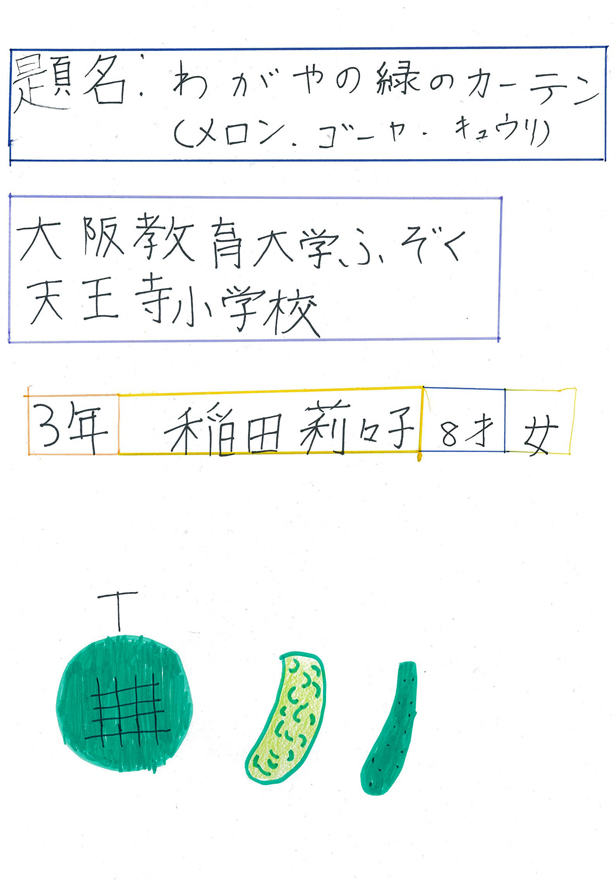 題名:わがやの緑のカーテン
(メロン.ゴーヤ.キュウリ)
大阪教育大学ふぞく
天王寺小学校
3年 稲田莉々子 8才 女